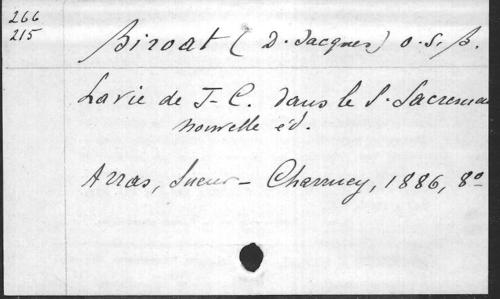 266
215
Biroat (D. Jacques) O. S. B.
La vie de J-C. dans le S. Sacremen
nouvelle éd.
Arras, Sueur-Charruey, 1886, 8º